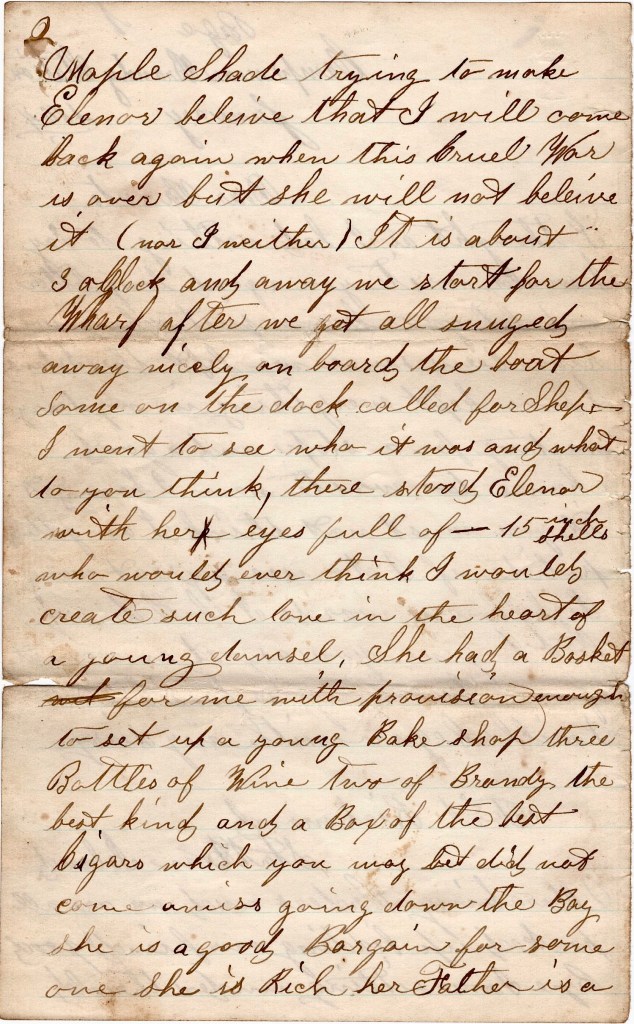 2
Maple Shade trying to make
Elenor beleive that I will come
back again when this Cruel War
is over but she will not beleive
it (nor I neither) It is about
3 oClock and away we start for the
Wharf after we got all snuged
away nicely on board the boat
some on the dock called for Shep.
I went to see who it was and what
to you think, there stood Elenor
with her eyes full of — 15 inch shells
who would ever think I would
create such love in the heart of
a young damsel. She had a Basket
for me with provision enough
to set up a young Bake shop three
Bottles of Wine two of Brandy the
best kind and a Box of the best
Cigars which you may bet did not
come amiss going down the Bay
she is a good Bargain for some
one she is Rich her Father is a